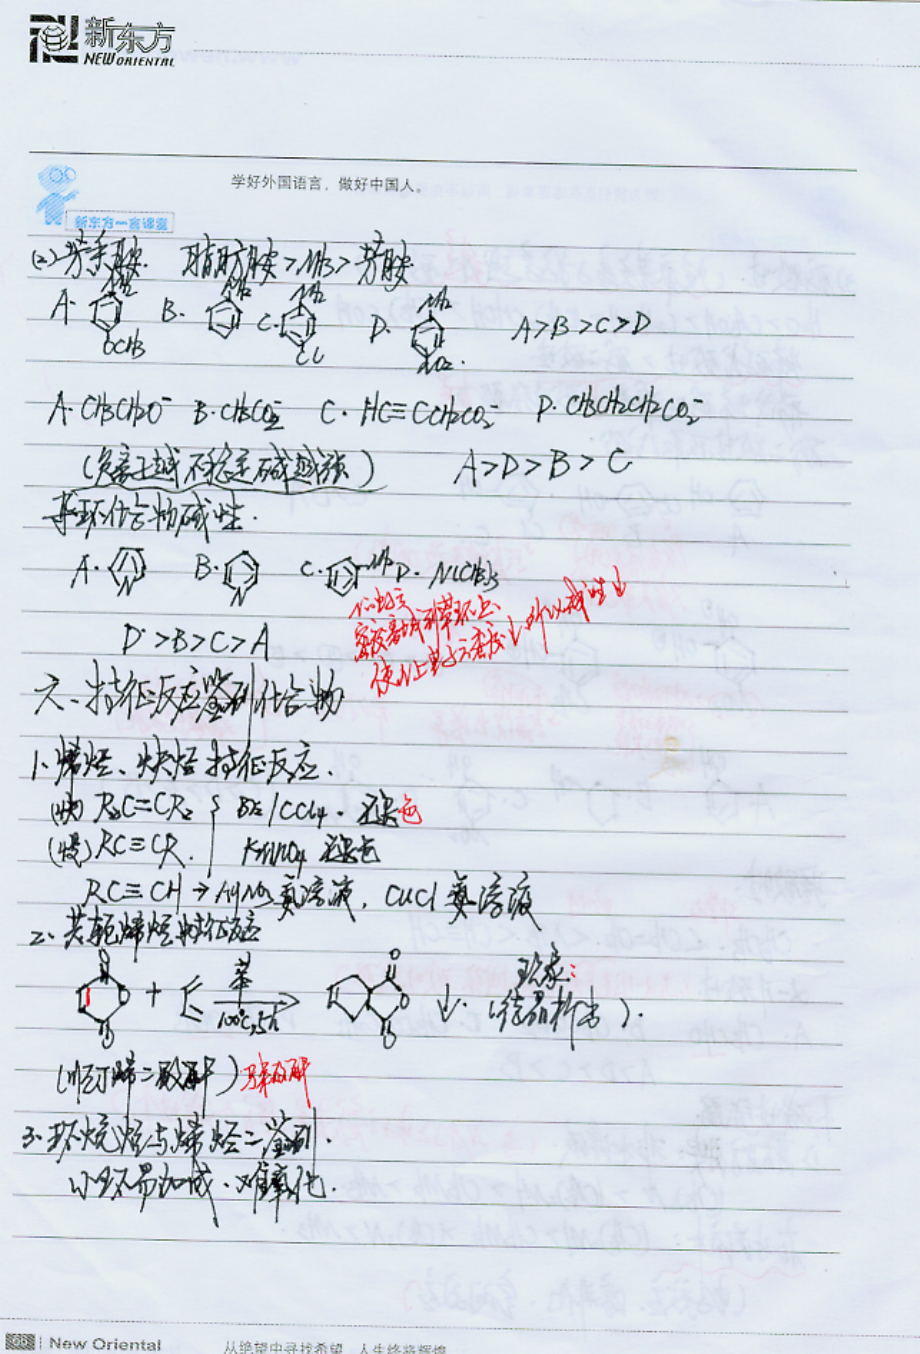 新东方
NEW ORIENTAL
学好外国语言，做好中国人。
新东方一言课堂
(2)芳香胺. 脂肪胺>NH3>芳胺
A. NH2 OCH3 B. NH2 C. NH2 Cl D. NH2 NO2. A>B>C>D
A. CH3CH2O⁻ B. CH3CO2⁻ C. HC≡CCH2CO2⁻ D. CH3CH2CH2CO2⁻
(负离子越不稳定碱越强) A>D>B>C
杂环化合物碱性.
A. N B. N C. NH2 D. N(CH3)3
使N上电子云密度↓ 所以碱性↓
D>B>C>A
六、特征反应鉴别化合物
1、烯烃、炔烃特征反应.
(快) R2C=CR2 Br2/CCl4. 褪色
(慢) RC≡CR. KMnO4 褪色
RC≡CH → AgNO3氨溶液, CuCl氨溶液
2、共轭烯烃特征反应
O O O + 苯 100℃,5h → O O O ↓. 现象: (结晶析出).
(顺丁烯二酸酐)
3、环烷烃与烯烃鉴别.
小环易加成、难氧化.
66 New Oriental
从绝望中寻找希望，人生终将辉煌